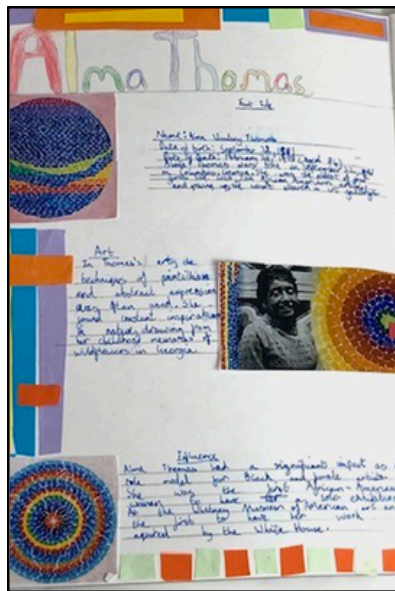 Alma Thomas
Fact File
Name: Alma Woodsey Thomas
Date of birth: September 22, 1891
Date of death: February 24, 1978 (aged 86)
Alma Thomas was born on September 22, 1891
in Columbus, Georgia. She was the oldest of four
Art
In Thomas's arts the
techniques of pointillism
and abstract expression
were often used. She
found constant inspiration
in nature, drawing from
her childhood memories of
wildflowers in Georgia
Influence
Alma Thomas had a significant impact as a
role model for Black and female artists.
She was the first African-American
women to have a solo exhibition
At the Whitney Museum of American art and
the first to have her work
aquired by the White House.